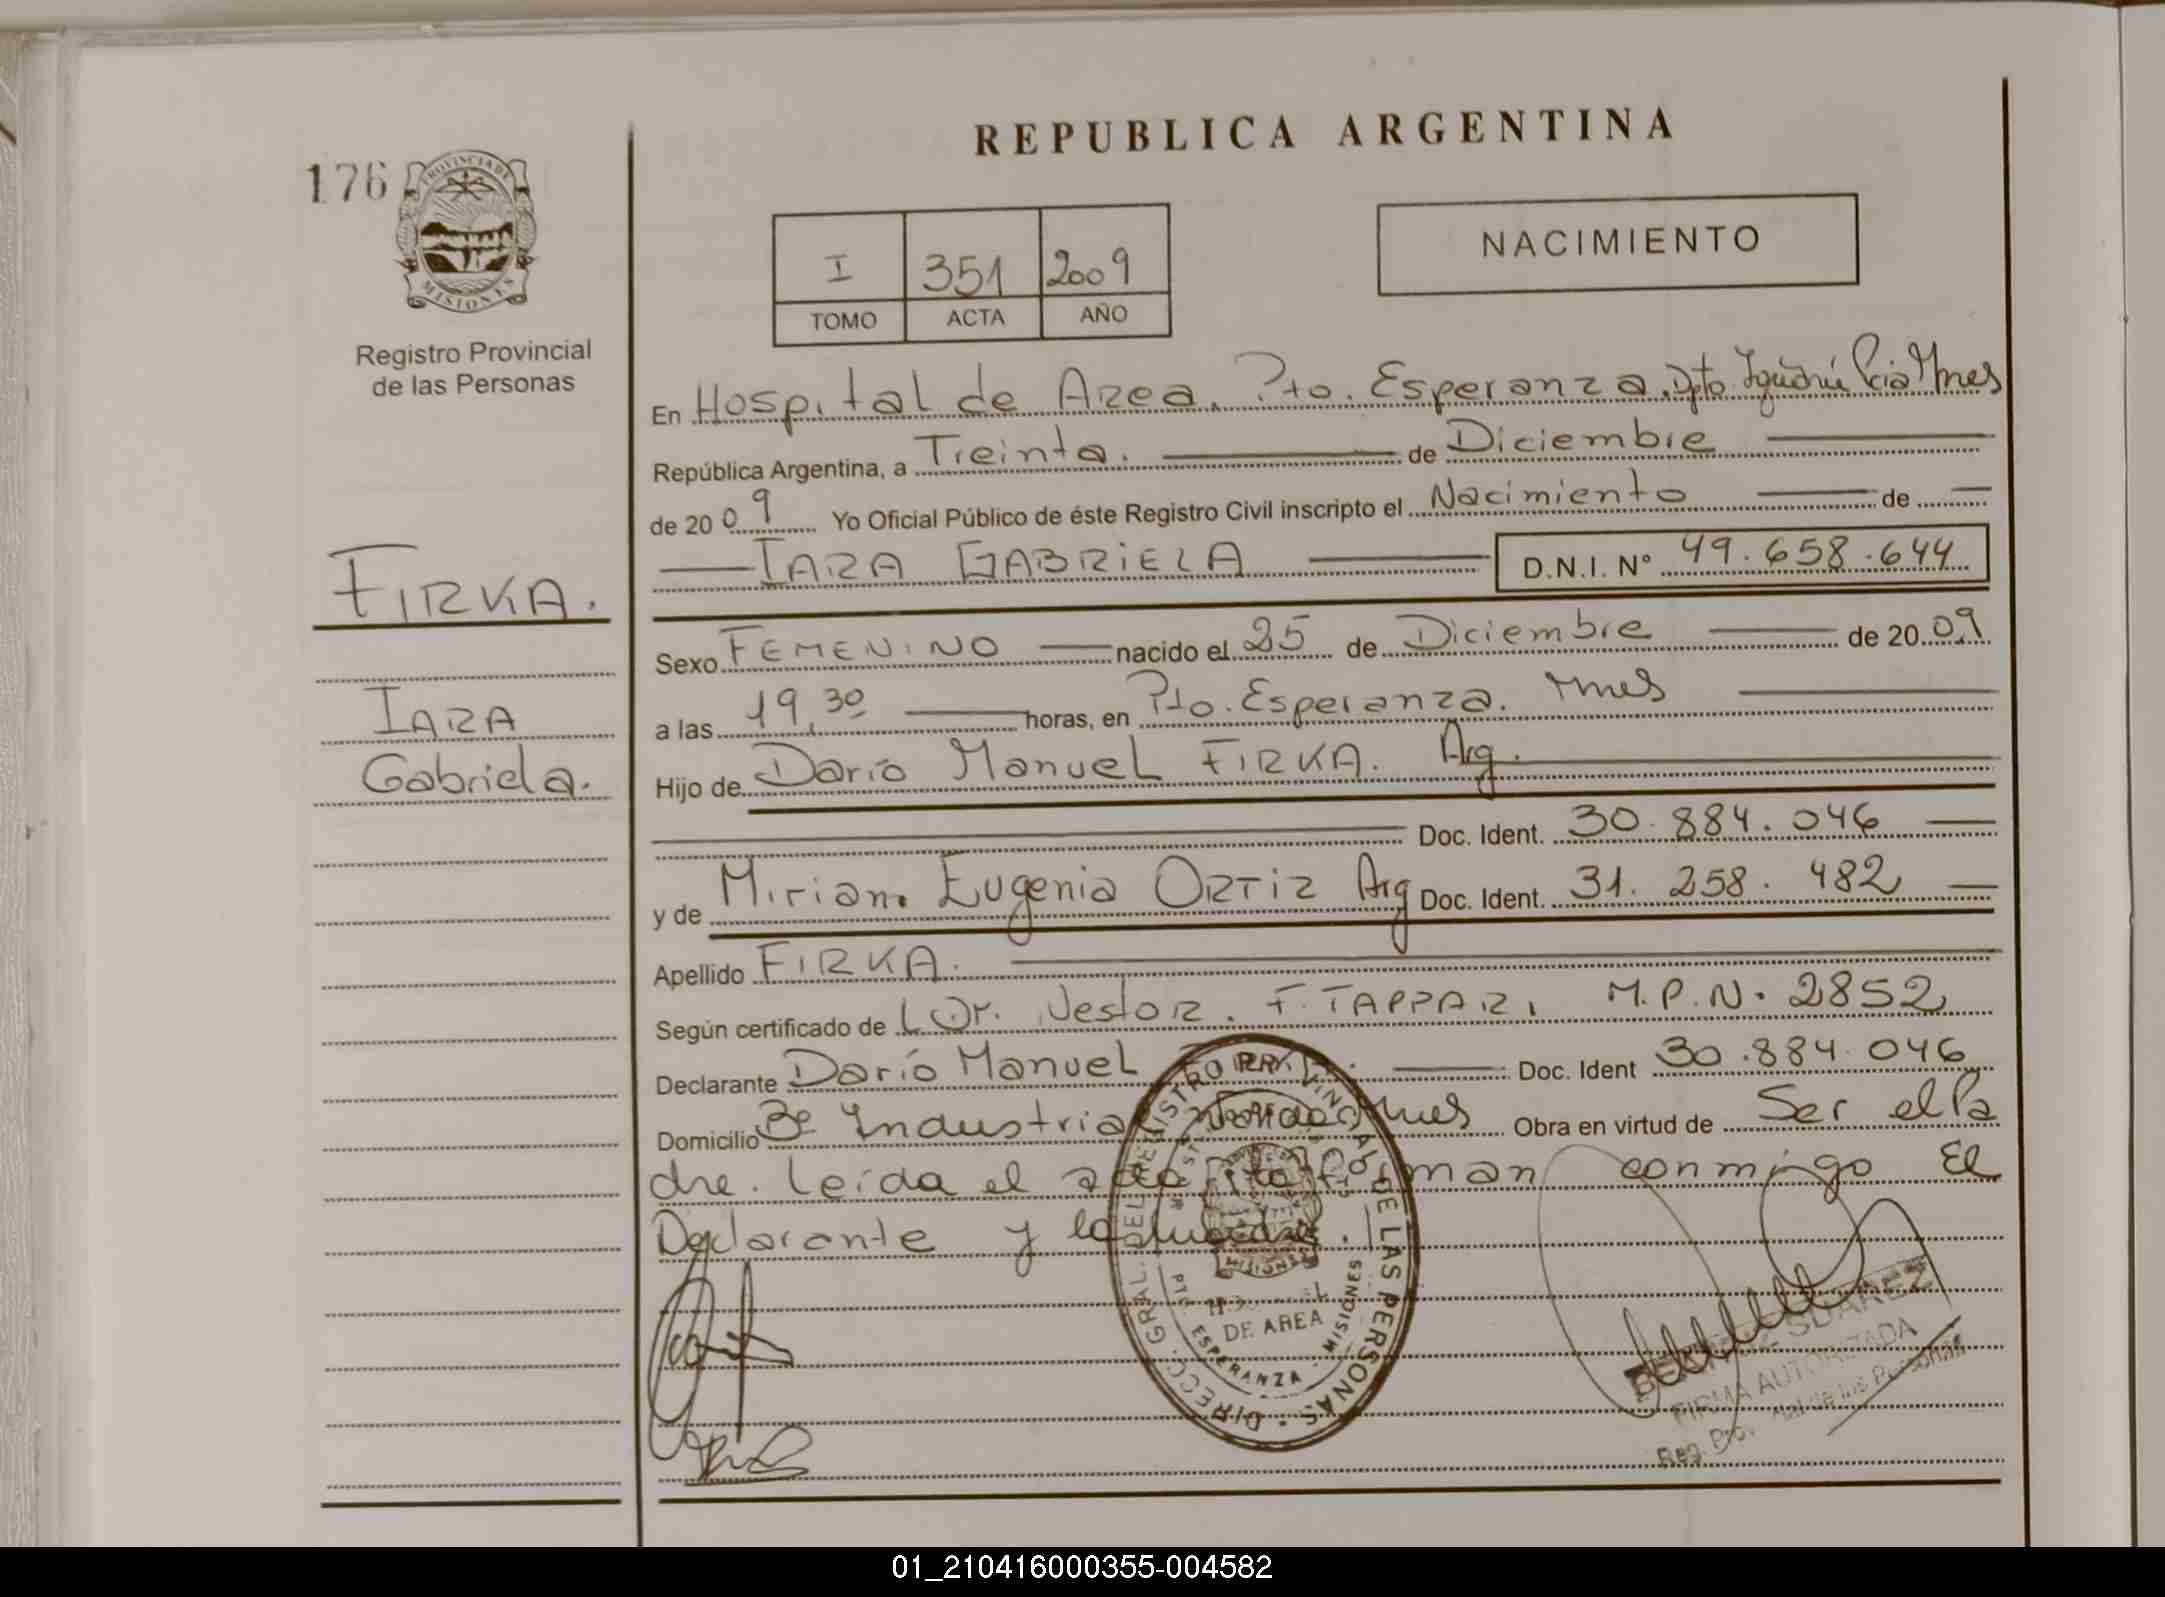 REPUBLICA ARGENTINA
176
PROVINCIA DE
MISIONES
Registro Provincial
de las Personas
I 351 2009
TOMO ACTA AÑO
NACIMIENTO
En Hospital de Area. Pto. Esperanza. Dpto Iguazú Pcia Mnes
República Argentina, a Treinta. de Diciembre
de 2009 Yo Oficial Público de éste Registro Civil inscripto el Nacimiento de
IARA GABRIELA D.N.I. Nº 49.658.644
FIRKA.
Iara
Gabriela.
Sexo FEMENINO nacido el 25 de Diciembre de 2009
a las 19,30 horas, en Pto. Esperanza. Mnes
Hijo de Darío Manuel FIRKA. Arg.
Doc. Ident. 30.884.046
y de Miriam Eugenia ORTIZ Arg Doc. Ident. 31.258.482
Apellido FIRKA.
Según certificado de Dr. Nestor. F. TAPPARI M.P.N. 2852
Declarante Darío Manuel Doc. Ident 30.884.046
Domicilio Bº Industrial Mnes Obra en virtud de Ser el Pa
dre. Leída el acta firman conmigo El
Declarante y la madre.
DIRECC. GRAL. DEL REGISTRO PROVINCIAL DE LAS PERSONAS
MISIONES
DE AREA
PTO. ESPERANZA - MISIONES
SUAREZ
FIRMA AUTORIZADA
Reg. Prov. de las Personas
01_210416000355-004582